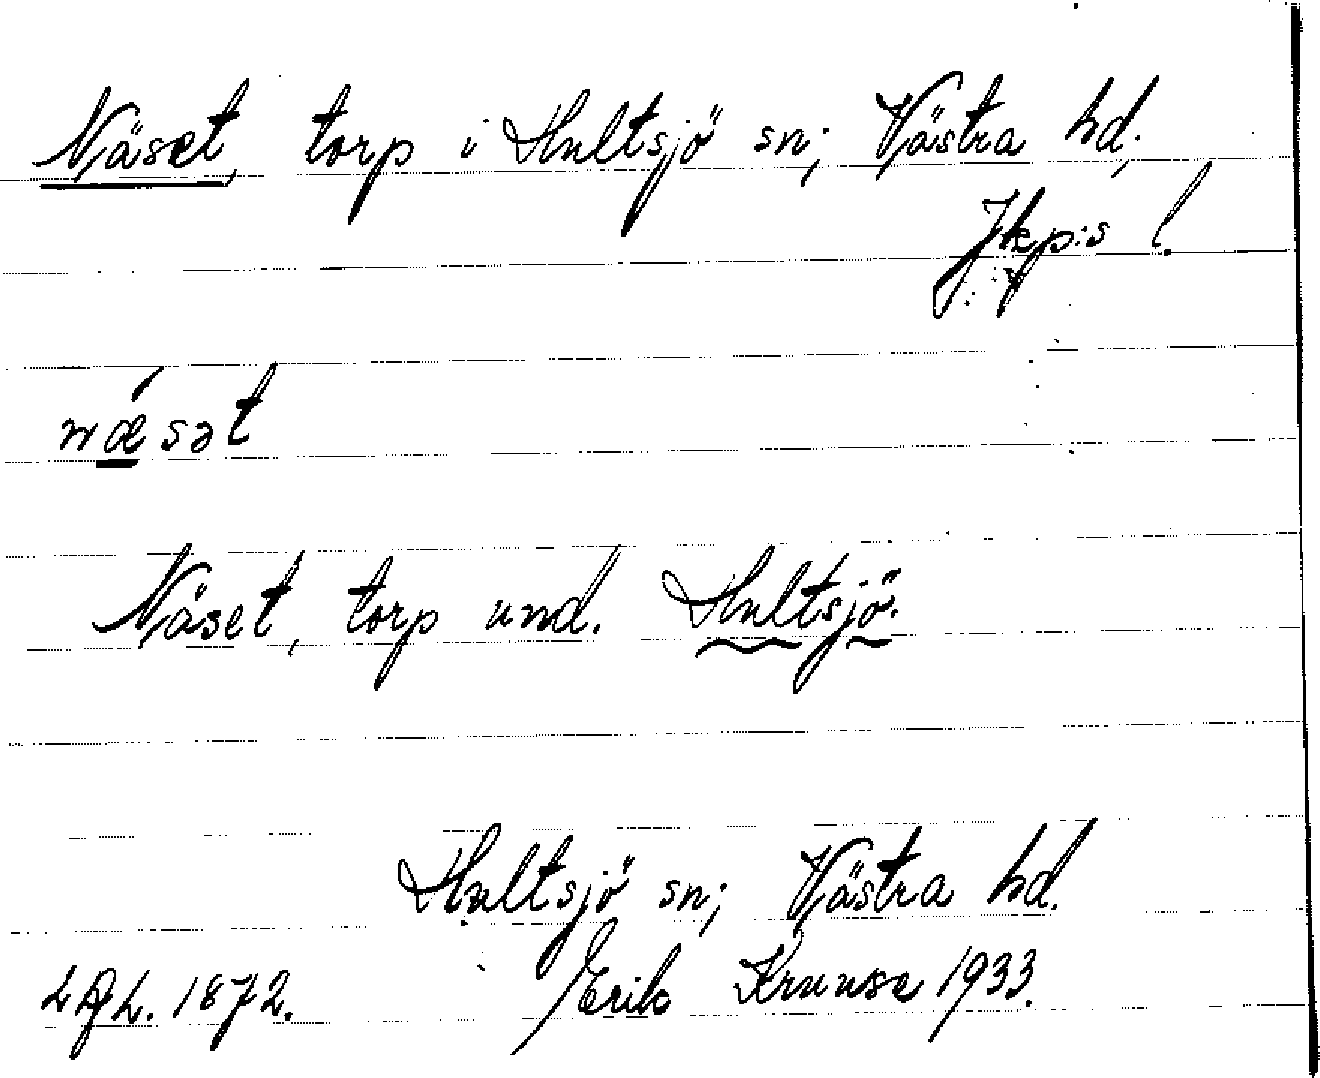 Näset, torp i Hultsjö sn; Västra hd,
Jkp:s l.
nǽsət
Näset, torp und. Hultsjö.
Hultsjö sn; Västra hd.
1872. Erik Kruuse 1933.